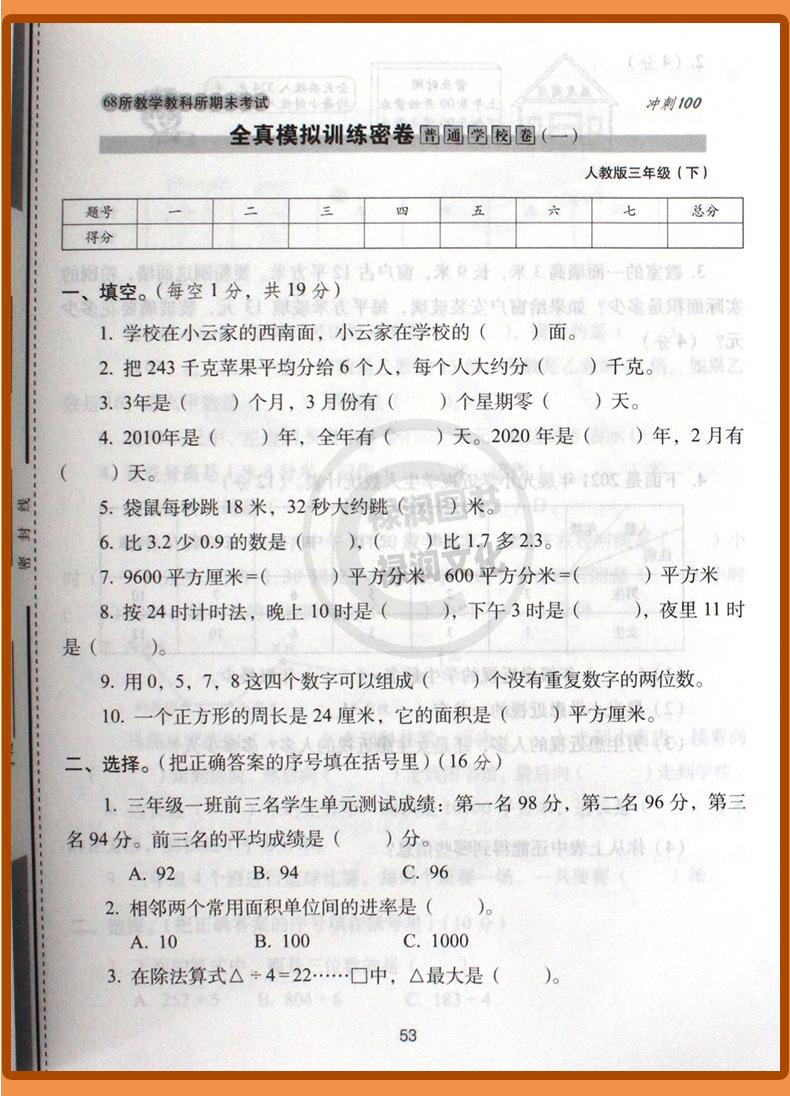 68所教学教科所期末考试
冲刺100
全真模拟训练密卷 普通学校卷(一)
人教版三年级(下)
题号 一 二 三 四 五 六 七 总分
得分
一、填空。(每空1分，共19分)
1. 学校在小云家的西南面，小云家在学校的(　　)面。
2. 把243千克苹果平均分给6个人，每个人大约分(　　)千克。
3. 3年是(　　)个月，3月份有(　　)个星期零(　　)天。
4. 2010年是(　　)年，全年有(　　)天。2020年是(　　)年，2月有
(　　)天。
5. 袋鼠每秒跳18米，32秒大约跳(　　)米。
6. 比3.2少0.9的数是(　　)，(　　)比1.7多2.3。
7. 9600平方厘米=(　　)平方分米　600平方分米=(　　)平方米
8. 按24时计时法，晚上10时是(　　)，下午3时是(　　)，夜里11时
是(　　)。
9. 用0，5，7，8这四个数字可以组成(　　)个没有重复数字的两位数。
10. 一个正方形的周长是24厘米，它的面积是(　　)平方厘米。
二、选择。(把正确答案的序号填在括号里)(16分)
1. 三年级一班前三名学生单元测试成绩：第一名98分，第二名96分，第三
名94分。前三名的平均成绩是(　　)分。
A. 92　B. 94　C. 96
2. 相邻两个常用面积单位间的进率是(　　)。
A. 10　B. 100　C. 1000
3. 在除法算式△÷4=22……□中，△最大是(　　)。
53
密封线
禄润图书
绿润文化